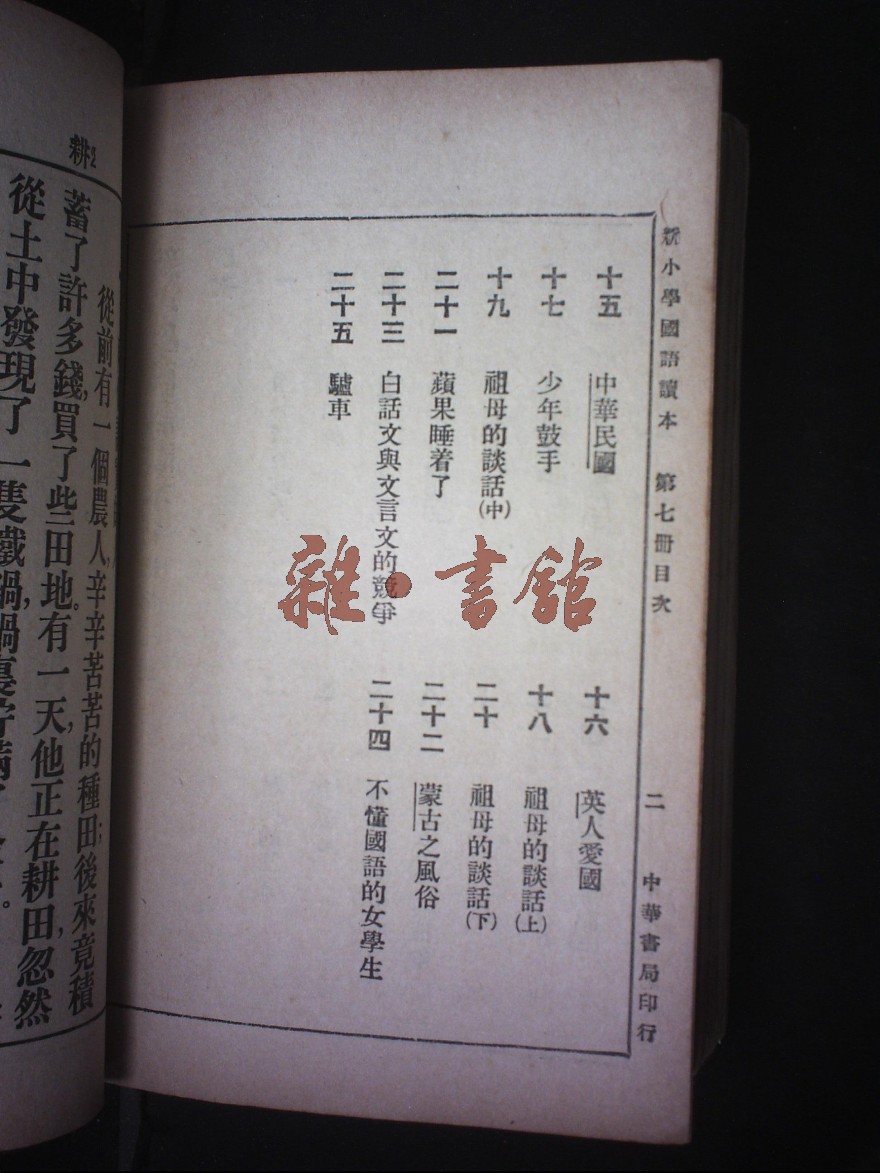 新小學國語讀本 第七冊目次 二 中華書局印行
十五 中華民國
十六 英人愛國
十七 少年鼓手
十八 祖母的談話(上)
十九 祖母的談話(中)
二十 祖母的談話(下)
二十一 蘋果睡着了
二十二 蒙古之風俗
二十三 白話文與文言文的競爭
二十四 不懂國語的女學生
二十五 驢車
雜·書館
從前有一個農人,辛辛苦苦的種田;後來竟積
蓄了許多錢,買了些田地。有一天,他正在耕田,忽然
從土中發現了一隻鐵鍋,鍋裏
耕